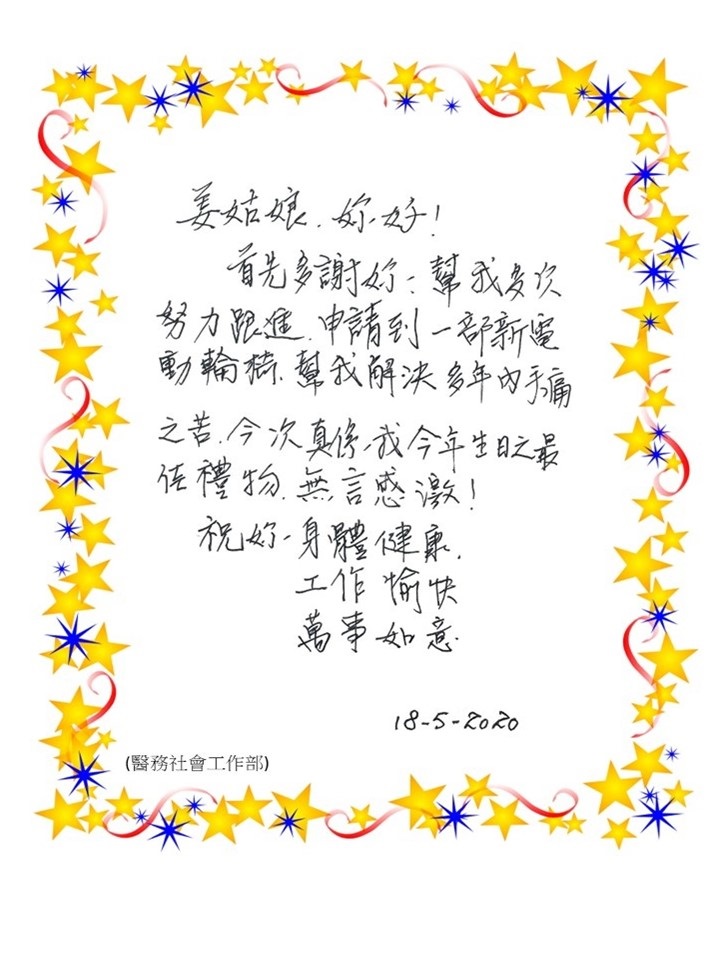 姜姑娘.妳好!
首先多謝妳:幫我多次
努力跟進.申請到一部新電
動輪椅.幫我解決多年內手痛
之苦.今次真係我今年生日之最
佳禮物.無言感激!
祝妳身體健康.
工作愉快
萬事如意.
18-5-2020
(醫務社會工作部)